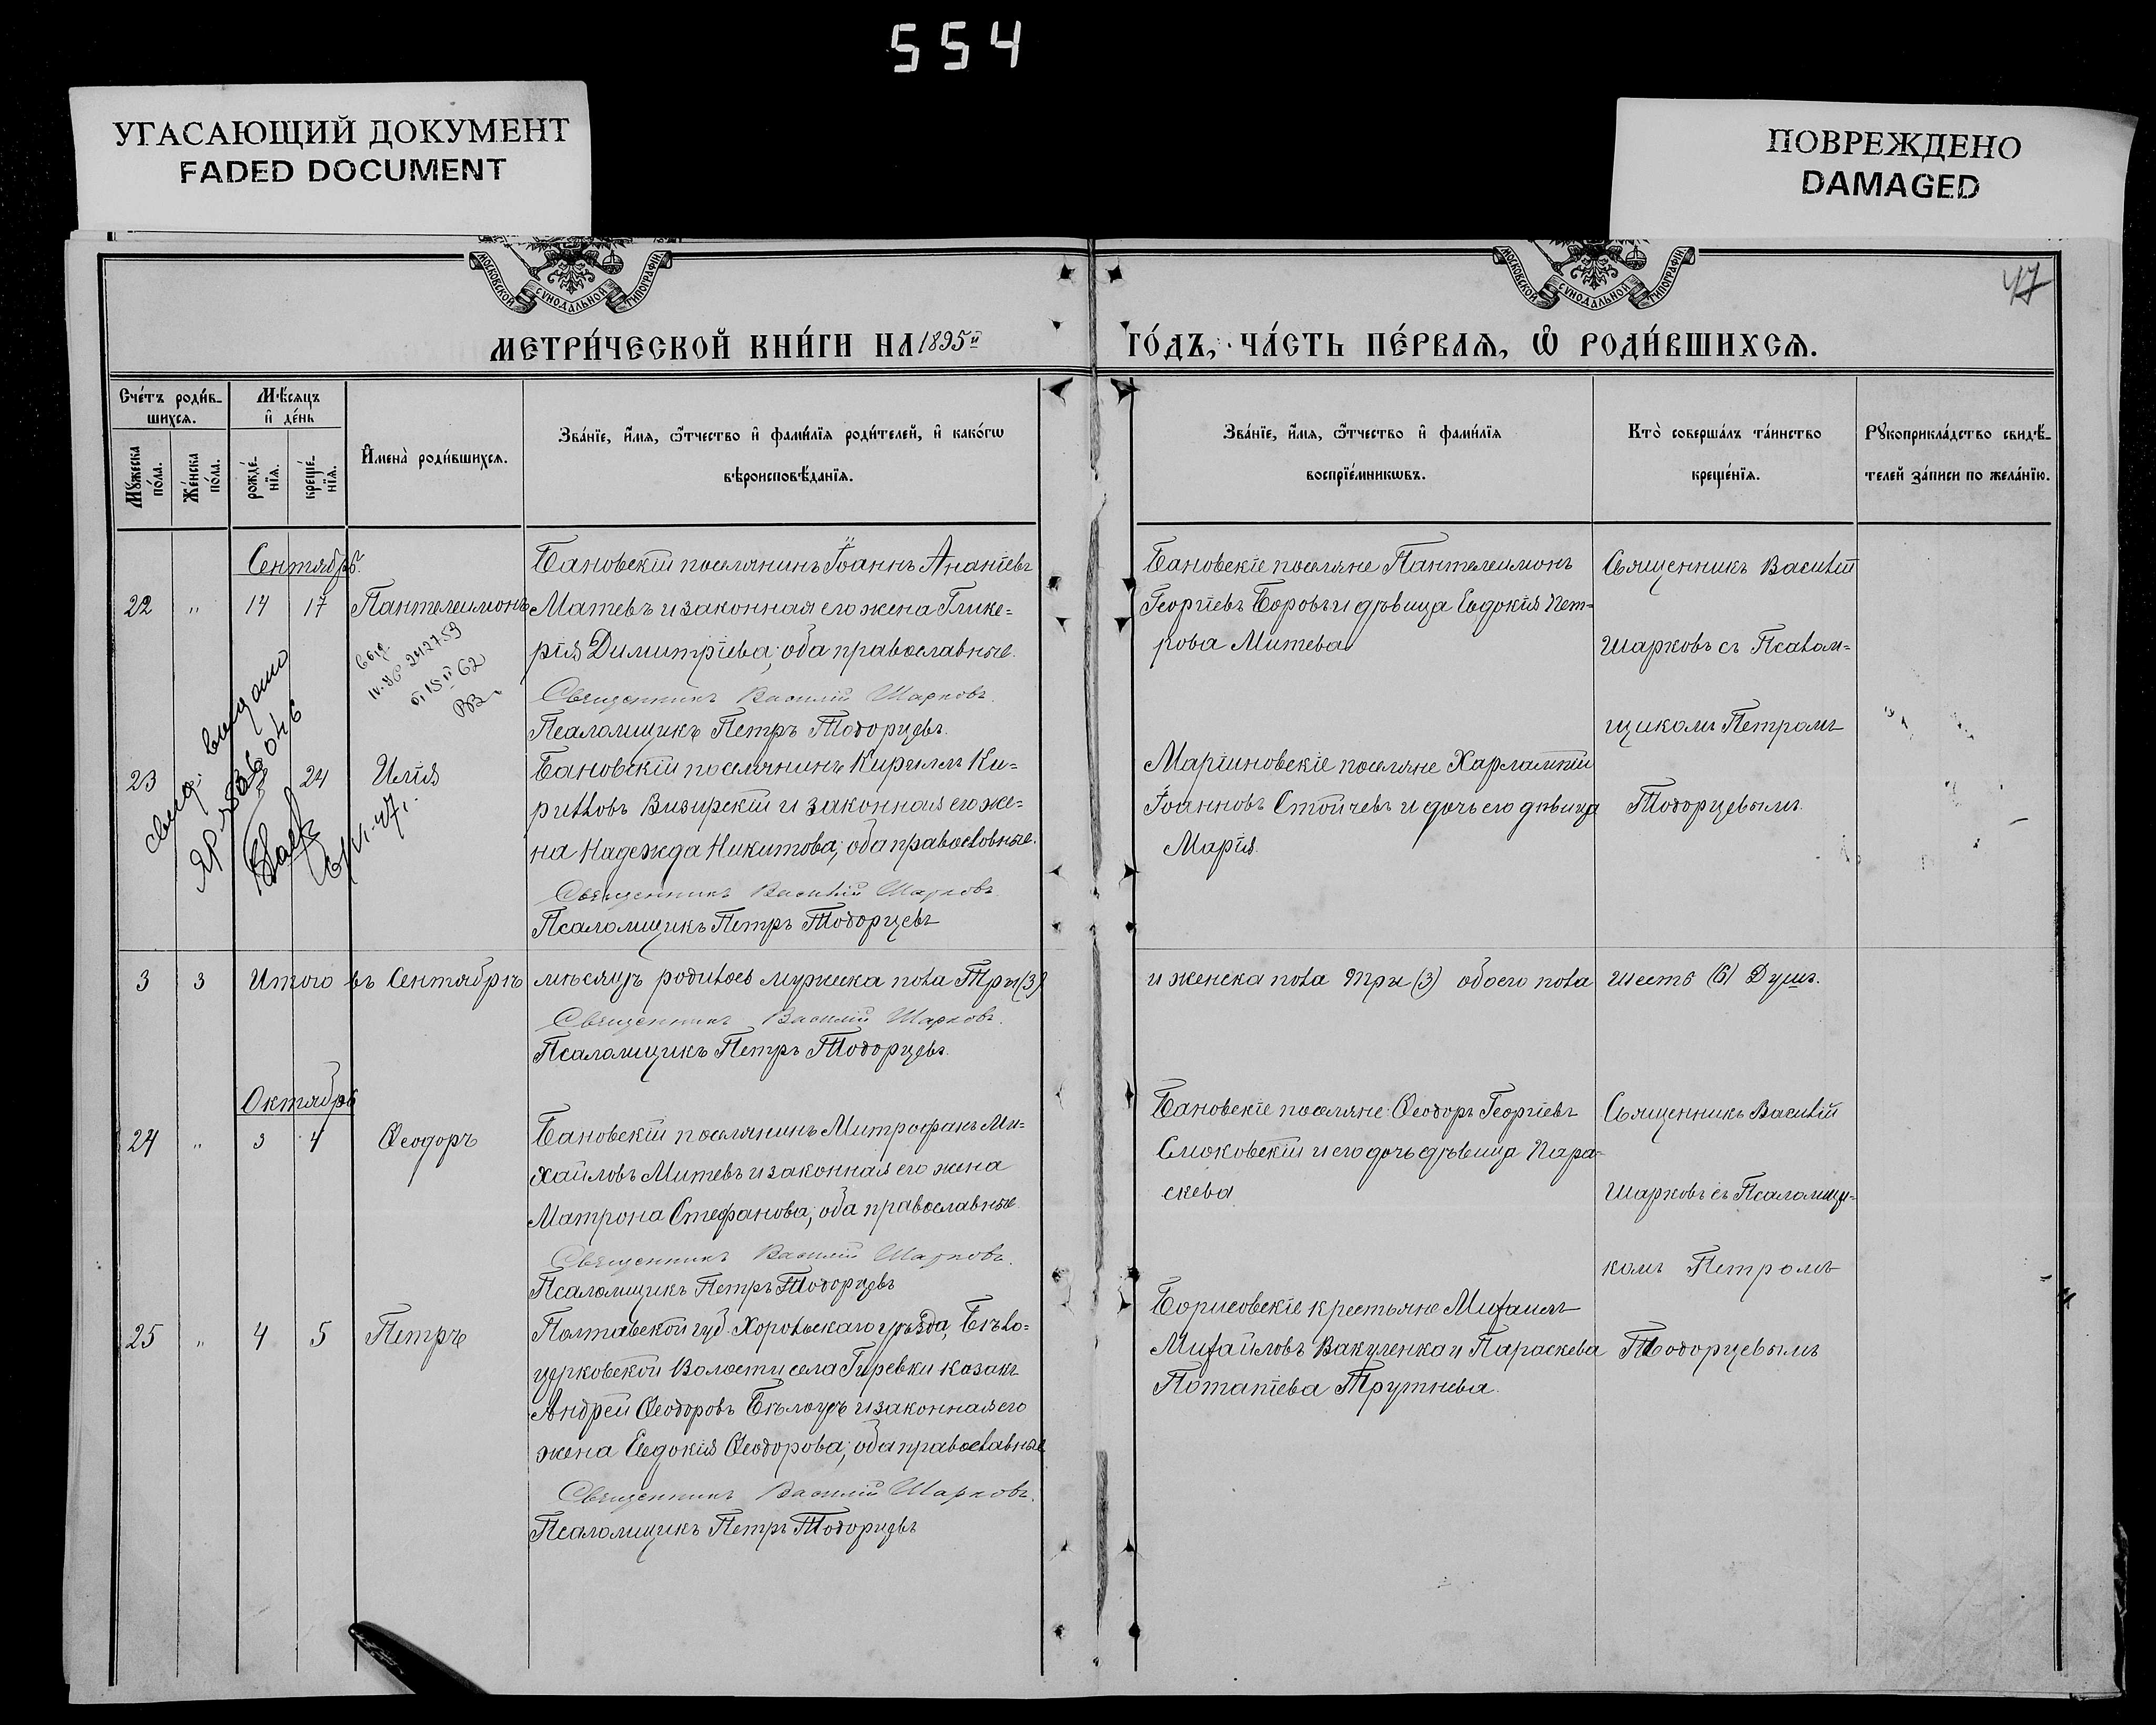 554
УГАСАЮЩИЙ ДОКУМЕНТ
FADED DOCUMENT
ПОВРЕЖДЕНО
DAMAGED
МОСКОВСКОЙ СѴНОДАЛЬНОЙ ТИПОГРАФІИ
МОСКОВСКОЙ СѴНОДАЛЬНОЙ ТИПОГРАФІИ
47
МЕТРИ́ЧЕСКОЙ КНИ́ГИ НА 1895й ГО́ДЪ, ЧА́СТЬ ПЕ́РВАЯ, Ѽ РОДИ́ВШИХСЯ.
Сче́тъ роди́в-
шихся.
Мꙋ́жеска по́ла.
Же́нска по́ла.
Мѣ́сяцъ
и҆ де́нь
рожде́-
нїя.
креще́-
нїя.
И҆мена̀ роди́вшихся.
Зва́нїе, и҆́мя, ѻ҆́тчество и҆ фами́лїя роди́телей, и҆ како́гѡ
вѣроисповѣ́данїя.
Зва́нїе, и҆́мя, ѻ҆́тчество и҆ фами́лїя
воспрїе́мникѡвъ.
Кто̀ соверша́лъ та́инство
креще́нїя.
Рꙋкоприкла́дство свидѣ́-
телей за́писи по жела́нїю.
Сентябрь.
22 " 14 17 Пантелеимонъ
Бановскій поселянинъ Іоаннъ Ананіевъ
Матевъ и законная его жена Глике-
рія Димитріева; оба православные.
Священникъ Василій Шарковъ.
Псаломщикъ Петръ Тодорцевъ.
Бановскіе поселяне Пантелеимонъ
Георгіевъ Боровъ и дѣвица Евдокія Пет-
рова Митева
Священникъ Василій
Шарковъ съ Псалом-
щикомъ Петромъ
Тодорцевымъ.
свид. выдано
23 24 Илія
Бановскій поселянинъ Кириллъ Ки-
рилловъ Визирскій и законная его же-
на Надежда Никитова; оба православные.
Священникъ Василій Шарковъ
Псаломщикъ Петръ Тодорцевъ
Маріиновскіе поселяне Харлампій
Іоанновъ Стойчевъ и дочь его дѣвица
Марія.
3 3 Итого въ Сентябрѣ мѣсяцѣ родилось мужеска пола Три (3) и женска пола три (3) обоего пола шесть (6) Душъ.
Священникъ Василій Шарковъ.
Псаломщикъ Петръ Тодорцевъ.
Октябрь
24 " 3 4 Ѳеодоръ
Бановскій поселянинъ Митрофанъ Ми-
хайловъ Митевъ и законная его жена
Матрона Стефанова; оба православные.
Священникъ Василій Шарковъ.
Псаломщикъ Петръ Тодорцевъ
Бановскіе поселяне: Ѳеодоръ Георгіевъ
Смоковскій и его дочь дѣвица Пара-
скева
Священникъ Василій
Шарковъ съ Псаломщи-
комъ Петромъ
Тодорцевымъ
25 " 4 5 Петръ
Полтавской губ. Хорольскаго уѣзда, Бѣло-
церковской Волости села Гиревки козакъ
Андрей Ѳеодоровъ Бѣлоусъ и законная его
жена Евдокія Ѳеодорова; оба православные
Священникъ Василій Шарковъ.
Псаломщикъ Петръ Тодорцевъ
Борисовскіе крестьяне Михаилъ
Михайловъ Вакуленко и Параскева
Потапіева Трутнева.